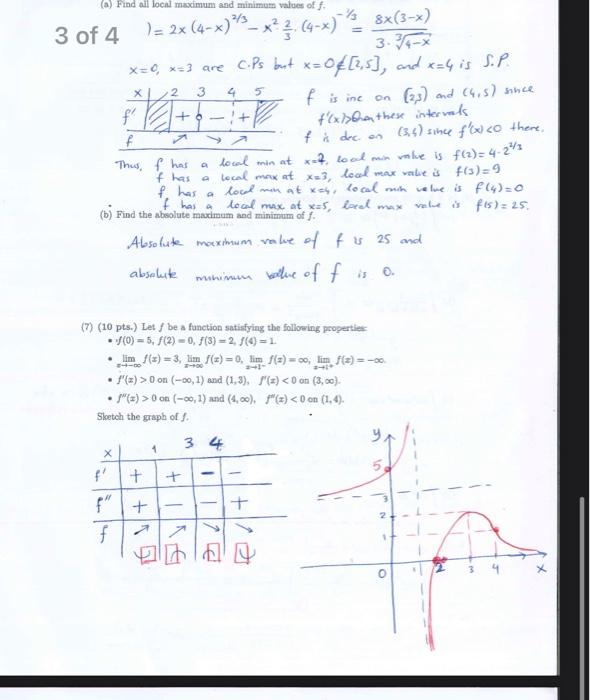 (a) Find all local maximum and minimum values of f.
3 of 4
)= 2x (4-x)^2/3 - x² 2/3 . (4-x)^-1/3 = 8x(3-x) / 3.∛4-x
x=0, x=3 are C.Ps but x=0∉[2,5], and x=4 is S.P.
x 2 3 4 5
f' + 0 - +
f
f is inc on (2,3) and (4,5) since
f'(x)>0 on these intervals
f is dec. on (3,4) since f'(x)<0 there.
Thus, f has a local min at x=2, local min value is f(2)=4.2^2/3
f has a local max at x=3, local max value is f(3)=9
f has a local min at x=4, local min value is f(4)=0
f has a local max at x=5, local max value is f(5)=25.
(b) Find the absolute maximum and minimum of f.
Absolute maximum value of f is 25 and
absolute minimum value of f is 0.
(7) (10 pts.) Let f be a function satisfying the following properties:
• f(0) = 5, f(2) = 0, f(3) = 2, f(4) = 1.
• lim x→-∞ f(x) = 3, lim x→∞ f(x) = 0, lim x→1⁻ f(x) = ∞, lim x→1⁺ f(x) = -∞.
• f'(x) > 0 on (-∞, 1) and (1, 3), f'(x) < 0 on (3, ∞).
• f''(x) > 0 on (-∞, 1) and (4, ∞), f''(x) < 0 on (1, 4).
Sketch the graph of f.
x 1 3 4
f' + + - -
f'' + - - +
f ↗ ↗ ↘ ↘
y
5
3
2
1
0 1 2 3 4 x